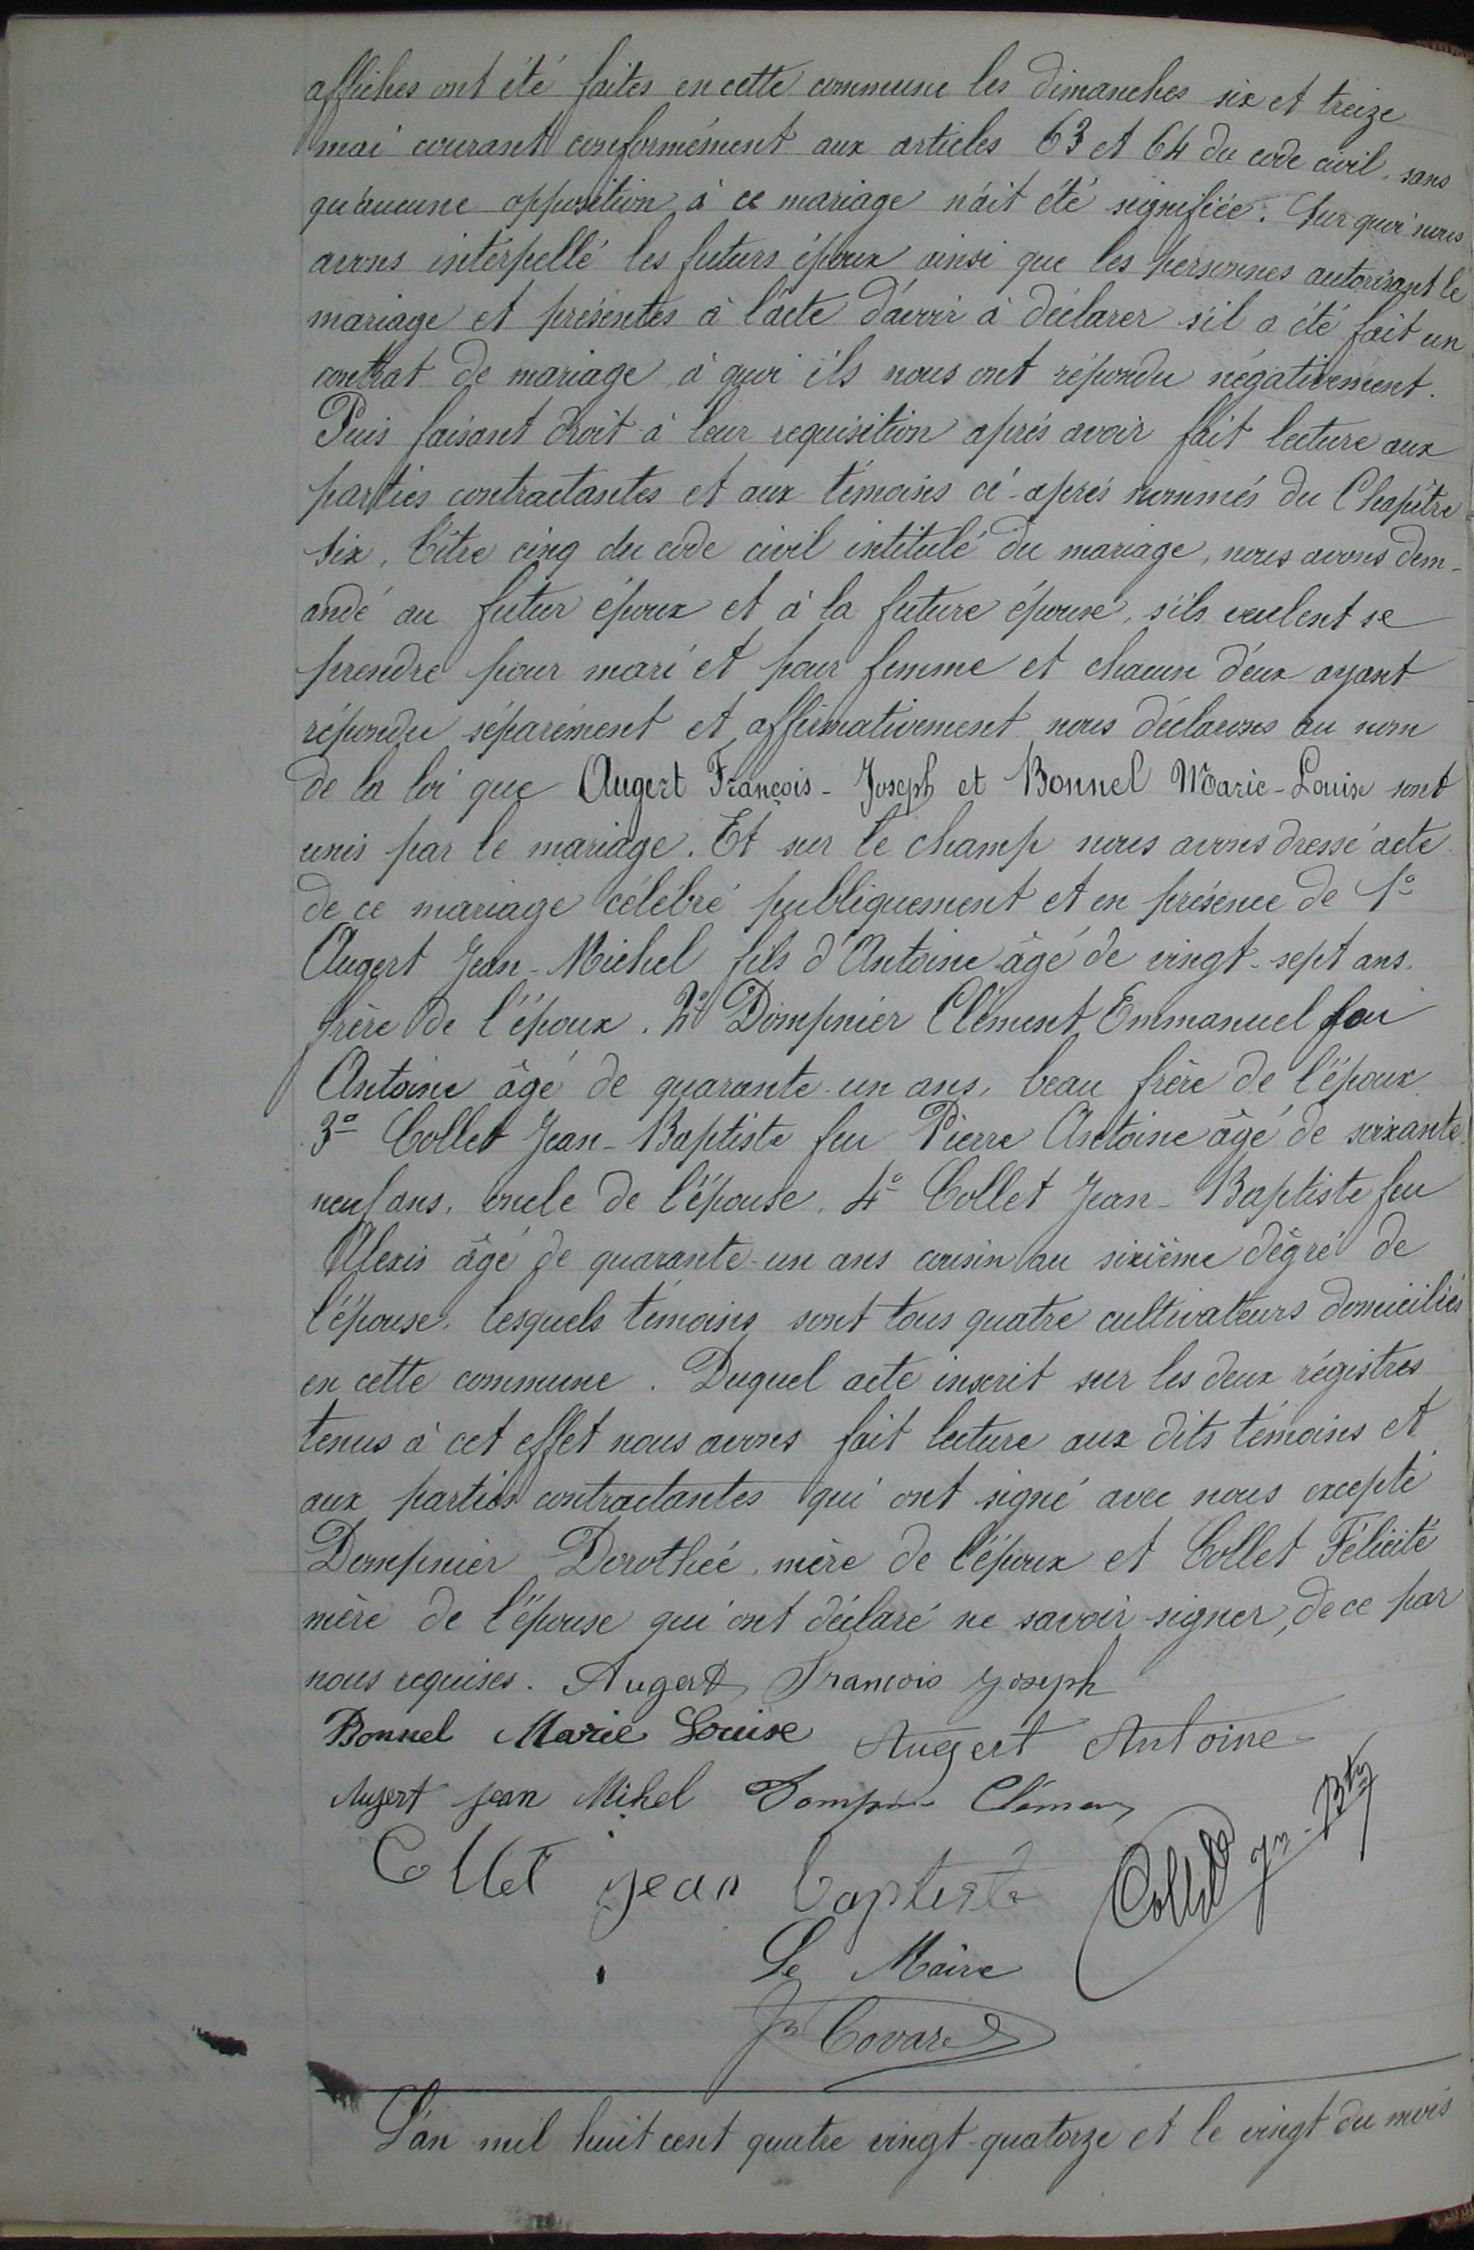 affiches ont été faites en cette commune les dimanches six et treize
mai courant conformément aux articles 63 et 64 du code civil, sans
qu'aucune opposition à ce mariage n'ait été signifiée. Sur quoi nous
avons interpellé les futurs époux ainsi que les personnes autorisant le
mariage et présentes à l'acte d'avoir à déclarer s'il a été fait un
contrat de mariage à quoi ils nous ont répondu négativement.
Puis faisant droit à leur requisition après avoir fait lecture aux
parties contractantes et aux témoins ci-après nommés du Chapitre
six, titre cinq du code civil intitulé du mariage, nous avons dem-
andé au futur époux et à la future épouse, s'ils veulent se
prendre pour mari et pour femme et chacun d'eux ayant
répondu séparément et affirmativement nous déclarons au nom
de la loi que Augert François-Joseph et Bonnel Marie-Louise sont
unis par le mariage. Et sur le champ nous avons dressé acte
de ce mariage célébré publiquement et en présence de 1°
Augert Jean-Michel fils d'Antoine âgé de vingt-sept ans,
frère de l'époux. 2° Dompnier Clément Emmanuel feu
Antoine âgé de quarante-un ans, beau frère de l'époux
3° Collet Jean-Baptiste feu Pierre Antoine âgé de soixante
neuf ans, oncle de l'épouse. 4° Collet Jean-Baptiste feu
Alexis âgé de quarante-un ans cousin au sixième dégré de
l'épouse, lesquels témoins sont tous quatre cultivateurs domiciliés
en cette commune. Duquel acte inscrit sur les deux régistres
tenus à cet effet nous avons fait lecture aux dits témoins et
aux parties contractantes qui ont signé avec nous excepté
Dompnier Dorothée, mère de l'époux et Collet Félicité
mère de l'épouse qui ont déclaré ne savoir signer, de ce par
nous requises. Augert François Joseph
Bonnel Marie Louise Augert Antoine
Augert jean Mihel Dompnier Clément
Collet jean baptiste Collet Jn-Bte
Le Maire
Jn Covarel
L'an mil huit cent quatre vingt-quatorze et le vingt du mois